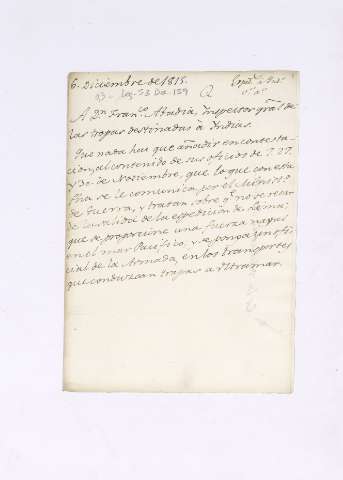 6. Diciembre de 1815.
A Dn. Franco. Abadia, Inspector gral. de
las tropas destinadas a Indias.
Que nada hay que añadir en contesta-
cion al contenido de sus oficios de 7. 27.
y 30. de Noviembre, que lo que con esta
fha. se le comunica por el Ministo.
de Guerra, y tratan sobre q. no se retar-
de la salida de la espedicion de Lima;
que se proporcione una fuerza naval
en el mar Pacifico, y se ponga un ofi-
cial de la Armada, en los transportes
que conduzcan tropas a Ultramar.